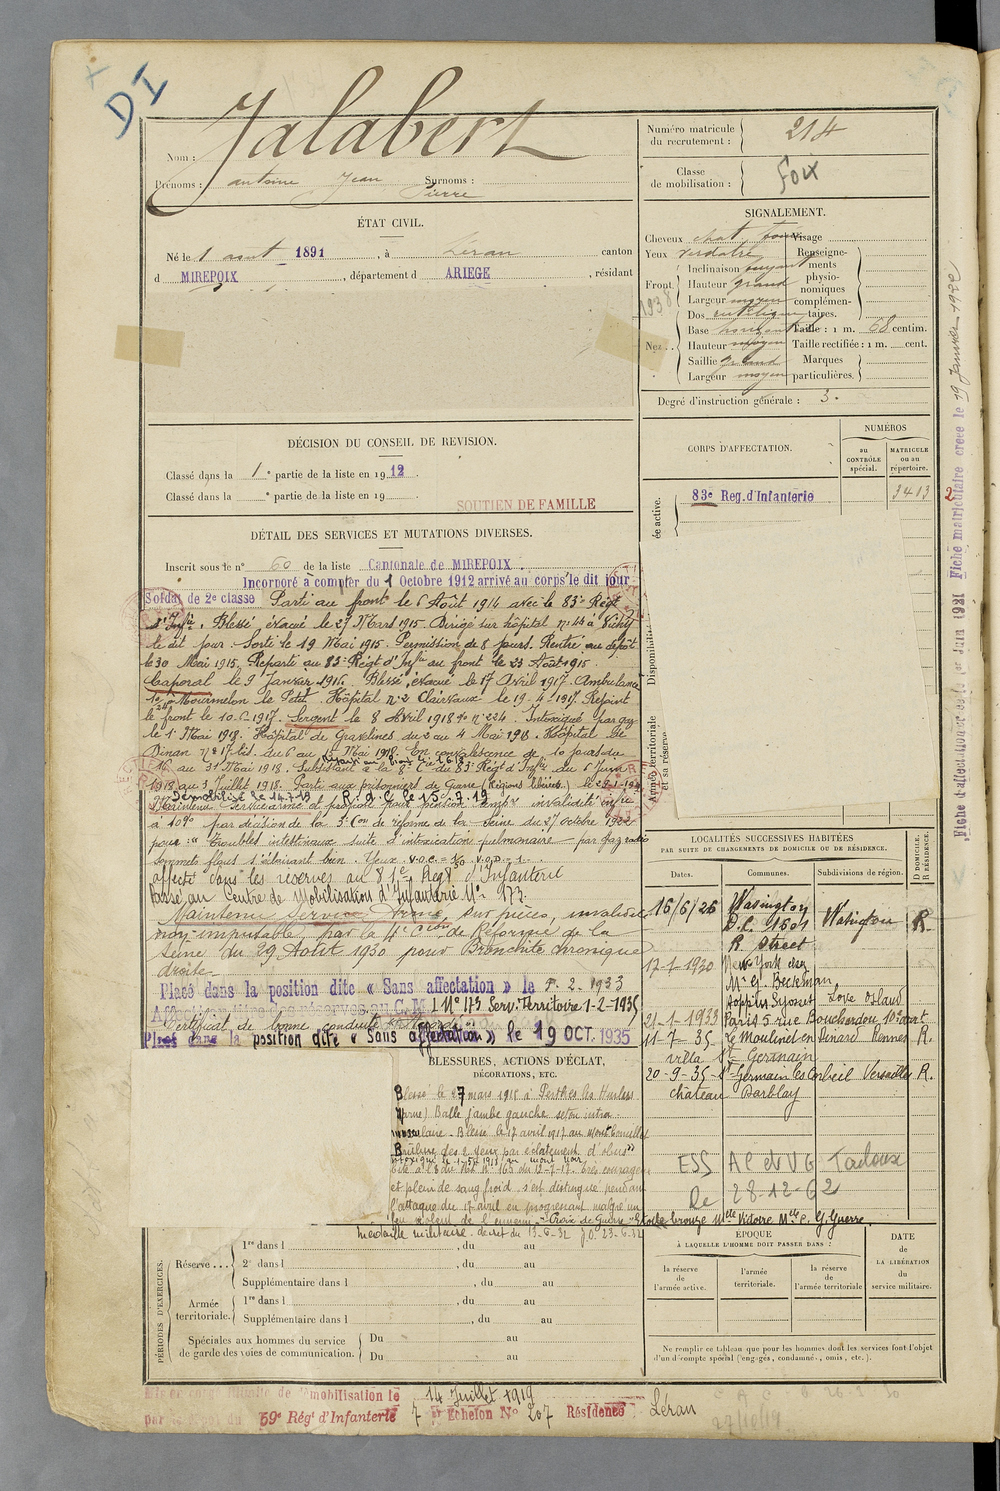 DI
Nom : Jalabert
Prénoms : Antoine Jean Surnoms :
Pierre
ÉTAT CIVIL.
Né le 1 août 1891, à Léran canton
d MIREPOIX, département d ARIEGE, résidant
DÉCISION DU CONSEIL DE REVISION.
Classé dans la 1e partie de la liste en 1912.
Classé dans la e partie de la liste en 19
SOUTIEN DE FAMILLE
DÉTAIL DES SERVICES ET MUTATIONS DIVERSES.
Inscrit sous le n° 60 de la liste Cantonale de MIREPOIX.
Incorporé à compter du 1 Octobre 1912 arrivé au corps le dit jour
Soldat de 2e classe Parti au front le 6 Août 1914 avec le 83e Régt
d'Infie. Blessé évacué le 27 Mars 1915. Dirigé sur hôpital n° 44 à Vichy
le dit jour. Sorti le 19 Mai 1915. Permission de 8 jours. Rentré au dépôt
le 30 Mai 1915. Reparti au 83e Régt d'Infie au front le 23 Août 1915.
Caporal le 9 Janvier 1916. Blessé, évacué le 17 Avril 1917. Ambulance
Mourmelon le Petit. Hôpital n° 2 Clairvaux le 19-4-1917. Rejoint
le front le 10-6-1917. Sergent le 8 Avril 1918 n° 224. Intoxiqué par gaz
le 1er Mai 1918. Hôpital de Gravelines du 2 au 4 Mai 1918. Hôpital de
Dinan n° 17 bis du 6 au 15 Mai 1918. En convalescence de 10 jours du
16 au 31 Mai 1918. Subsistant à la 8e Cie du 83e Régt d'Infie du 6 Juin
1918 au 3 Juillet 1918. Parti aux prisonniers de Guerre (Régions libérées) le
Démobilisé le 14.7.19 R.d.C. le 15.7.19
Maintenu Service armé et proposé pour pension temp. invalidité infre
à 10% par décision de la 3e Con de réforme de la Seine du 27 octobre
pour : "troubles intestinaux suite d'intoxication pulmonaire par gaz radio
sommets flous s'éclairant bien. Yeux. V.O.G. = V.O.D. = 1.
affecté dans les réserves au 81e Regt d'Infanterie
Passé au Centre de Mobilisation d'Infanterie N° 173.
Maintenu Service Armé, sur pièces, invalidité
non imputable, par la 4e Cion de Réforme de la
Seine du 29 Août 1930 pour Bronchite chronique
droite.
Placé dans la position dite « Sans affectation » le 2. 1933
N° 173 Serv. Territoire 1-2-1935
Certificat de bonne conduite
Placé dans la position dite « Sans affectation » le 19 OCT. 1935
BLESSURES, ACTIONS D'ÉCLAT,
DÉCORATIONS, ETC.
Blessé le 27 mars 1915 à Perthes les Hurlus
(Marne) Balle jambe gauche séton intra-
musculaire - Blessé le 17 avril 1917 au Mont Cornillet
Brûlure des 2 yeux par éclatement d'obus
Cité à l'Ordre Régt N° 163 du 12-7-17. Très courageux
et plein de sang froid s'est distingué pendant
l'attaque du 17 avril en progressant malgré un
feu violent de l'ennemi - Croix de Guerre - Etoile bronze Mlle Victoire Mlle C. G. Guerre.
Médaille militaire. décret du 13-6-32 JO 23-6-32
PÉRIODES D'EXERCICES.
Réserve... 1re dans l , du au
2e dans l , du au
Supplémentaire dans l , du au
Armée territoriale. 1re dans l , du au
Supplémentaire dans l , du au
Spéciales aux hommes du service de garde des voies de communication. Du au
Du au
Numéro matricule du recrutement : 214
Classe de mobilisation : Foix
SIGNALEMENT.
Cheveux chat. foncé
Yeux verdâtre
Front. Inclinaison moyen
Hauteur grand
Largeur moyen
Nez.. Dos rectiligne
Base horizontale
Hauteur moyen
Saillie grand
Largeur moyen
Visage
Renseignements physionomiques complémentaires.
Taille : 1 m. 68 centim.
Taille rectifiée : 1 m. cent.
Marques particulières.
1938
Degré d'instruction générale : 3.
CORPS D'AFFECTATION.
NUMÉROS
au CONTRÔLE spécial.
MATRICULE ou au répertoire.
83e Reg. d'Infanterie 3413
ée active.
Disponibilité
Armée territoriale et sa réserve
LOCALITÉS SUCCESSIVES HABITÉES
PAR SUITE DE CHANGEMENTS DE DOMICILE OU DE RÉSIDENCE.
Dates. Communes. Subdivisions de région. D DOMICILE. R RÉSIDENCE.
16/6/26 Wasington Wasington R.
D.C. 1601
R. Street
17-1-1930 New-York chez
Mr G. Beckman
Syosset Long Island
21-1-1933 Paris 5 rue Bouchardou 10e arrt
11-7-35 Le Moulinet en Dinard Rennes R.
villa St Germain
20-9-35 St Germain les Corbeil Versailles R.
château Darblay
ESS AC et VG Toulouse
le 28-12-62
ÉPOQUE
À LAQUELLE L'HOMME DOIT PASSER DANS :
la réserve de l'armée active.
l'armée territoriale.
la réserve de l'armée territoriale
DATE de LA LIBÉRATION du service militaire.
Ne remplir ce tableau que pour les hommes dont les services font l'objet
d'un décompte spécial (engagés, condamnés, omis, etc.).
Fiche d'affectation 1er Juin 1921 Fiche matriculaire créée le 19 Janvier 1922
Mis en congé illimité de démobilisation le 14 Juillet 1919
par le Dépôt du 59e Régt d'Infanterie 7e Echelon N° 207 Résidence : Léran
27/10/19